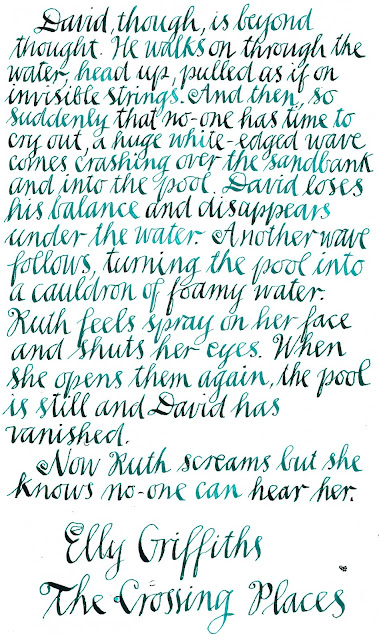 David, though, is beyond
thought. He walks on through the
water, head up, pulled as if on
invisible strings. And then, so
suddenly that no-one has time to
cry out, a huge white-edged wave
comes crashing over the sandbank
and into the pool. David loses
his balance and disappears
under the water. Another wave
follows, turning the pool into
a cauldron of foamy water.
Ruth feels spray on her face
and shuts her eyes. When
she opens them again, the pool
is still and David has
vanished.
Now Ruth screams but she
knows no-one can hear her.
Elly Griffiths
The Crossing Places